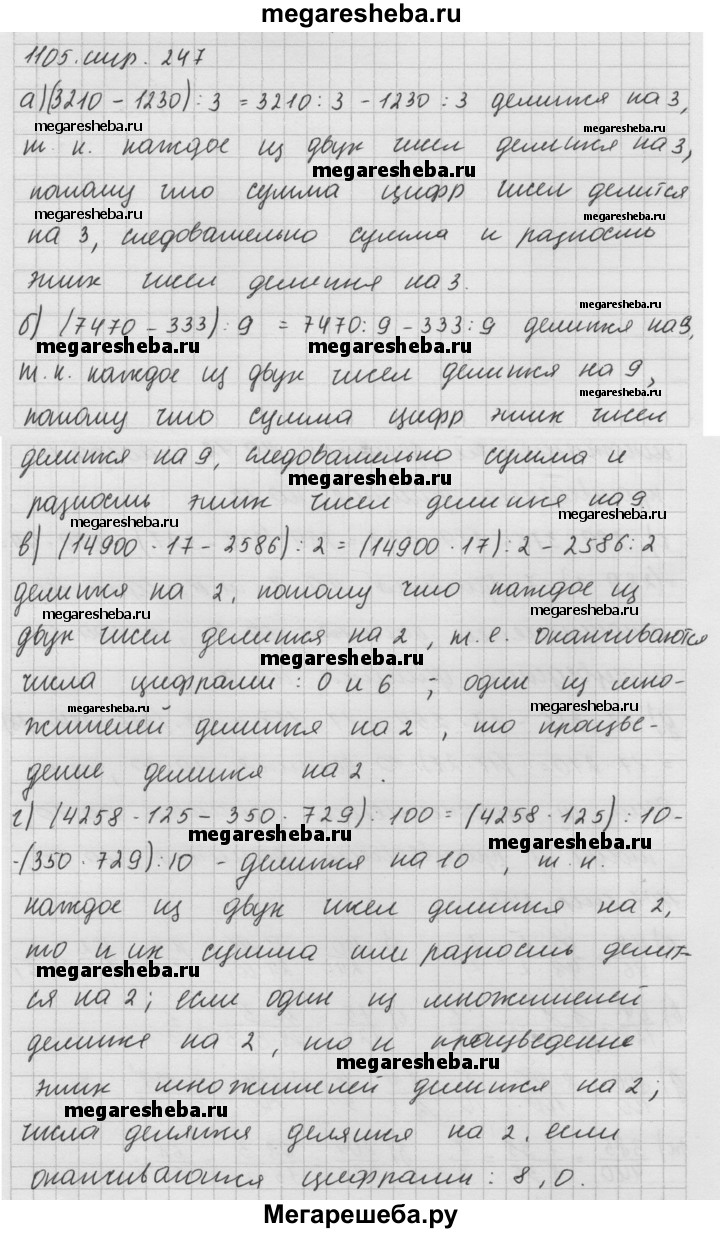 megaresheba.ru
1105. стр. 247
а) (3210 - 1230) : 3 = 3210 : 3 - 1230 : 3 делится на 3,
megaresheba.ru megaresheba.ru
т. к. каждое из двух чисел делится на 3,
megaresheba.ru
потому что сумма цифр чисел делится
megaresheba.ru megaresheba.ru
на 3, следовательно сумма и разность
этих чисел делится на 3.
megaresheba.ru
б) (7470 - 333) : 9 = 7470 : 9 - 333 : 9 делится на 9,
megaresheba.ru megaresheba.ru
т. к. каждое из двух чисел делится на 9,
megaresheba.ru
потому что сумма цифр этих чисел
делится на 9, следовательно сумма и
megaresheba.ru
разность этих чисел делится на 9
megaresheba.ru megaresheba.ru
в) (14900 · 17 - 2586) : 2 = (14900 · 17) : 2 - 2586 : 2
делится на 2, потому что каждое из
megaresheba.ru megaresheba.ru
двух чисел делится на 2, т. е. оканчиваются
megaresheba.ru
числа цифрами : 0 и 6 ; один из мно-
megaresheba.ru megaresheba.ru
жителей делится на 2, то произве-
дение делится на 2.
г) (4258 · 125 - 350 · 729) · 100 = (4258 · 125) : 10 -
megaresheba.ru megaresheba.ru
-(350 · 729) : 10 - делится на 10, т. к.
каждое из двух чисел делится на 2,
то и их сумма или разность делит-
megaresheba.ru megaresheba.ru
ся на 2; если один из множителей
делится на 2, то и произведение
megaresheba.ru
этих множителей делится на 2;
megaresheba.ru
числа делятся делятся на 2, если
оканчиваются цифрами : 8, 0.
Мегарешеба.ру